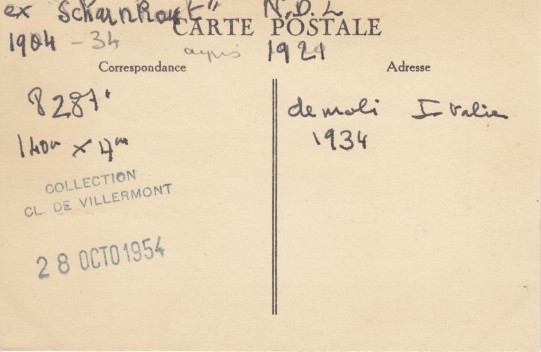 ex "Scharnhorst" N.D.L
CARTE POSTALE
1904-34 acquis 1921
Correspondance
Adresse
8287t
140m x 17m
demoli Italie
1934
COLLECTION
CL. DE VILLERMONT
28 OCTO 1954